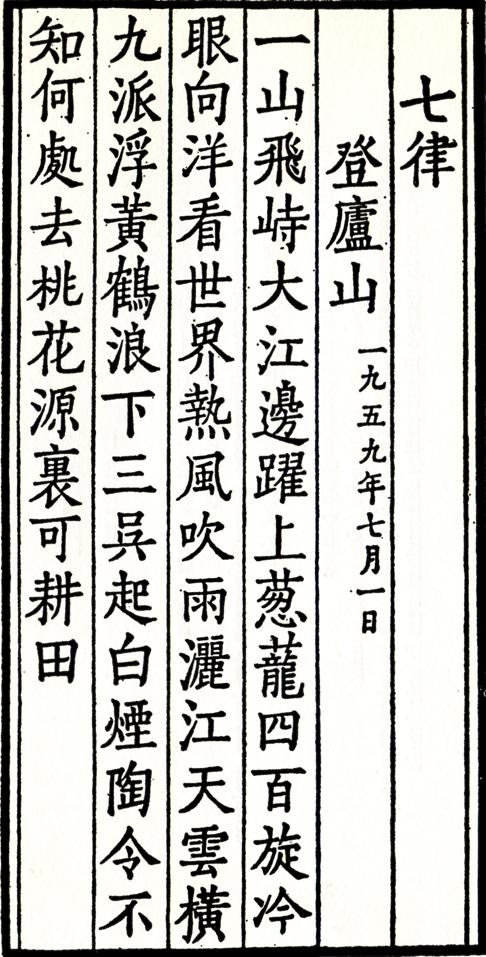 七律
登廬山 一九五九年七月一日
一山飛峙大江邊躍上葱蘢四百旋冷
眼向洋看世界熱風吹雨灑江天雲橫
九派浮黃鶴浪下三吳起白煙陶令不
知何處去桃花源裏可耕田